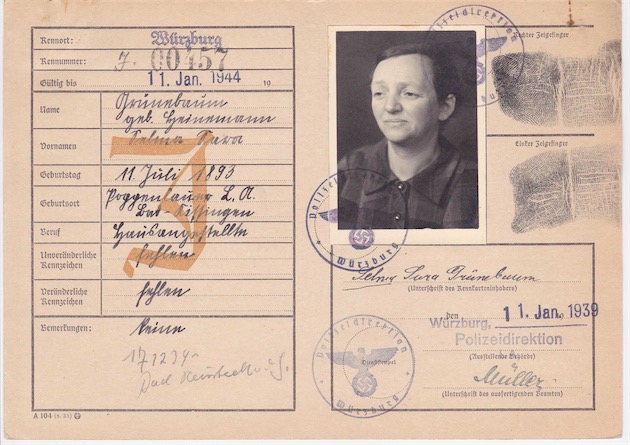 Kennort: Würzburg
Kennummer: J. 00457
Gültig bis 11. Jan. 1944 19
Name Grünebaum
geb. Heinemann
Vornamen Selma Sara
Geburtstag 11. Juli 1893
Geburtsort Poppenlauer L. A.
Bad-Kissingen
Beruf Hausangestellte
Unveränderliche Kennzeichen fehlen
Veränderliche Kennzeichen fehlen
Bemerkungen: keine
J
A 104 (8. 38)
Polizeidirektion
Würzburg
Rechter Zeigefinger
Linker Zeigefinger
Polizeidirektion
Würzburg
Selma Sara Grünebaum
(Unterschrift des Kennkarteninhabers)
Würzburg, den 11. Jan. 1939
Polizeidirektion
(Ausstellende Behörde)
Müller
(Unterschrift des ausfertigenden Beamten)
Polizeidirektion
Dienststempel
Würzburg